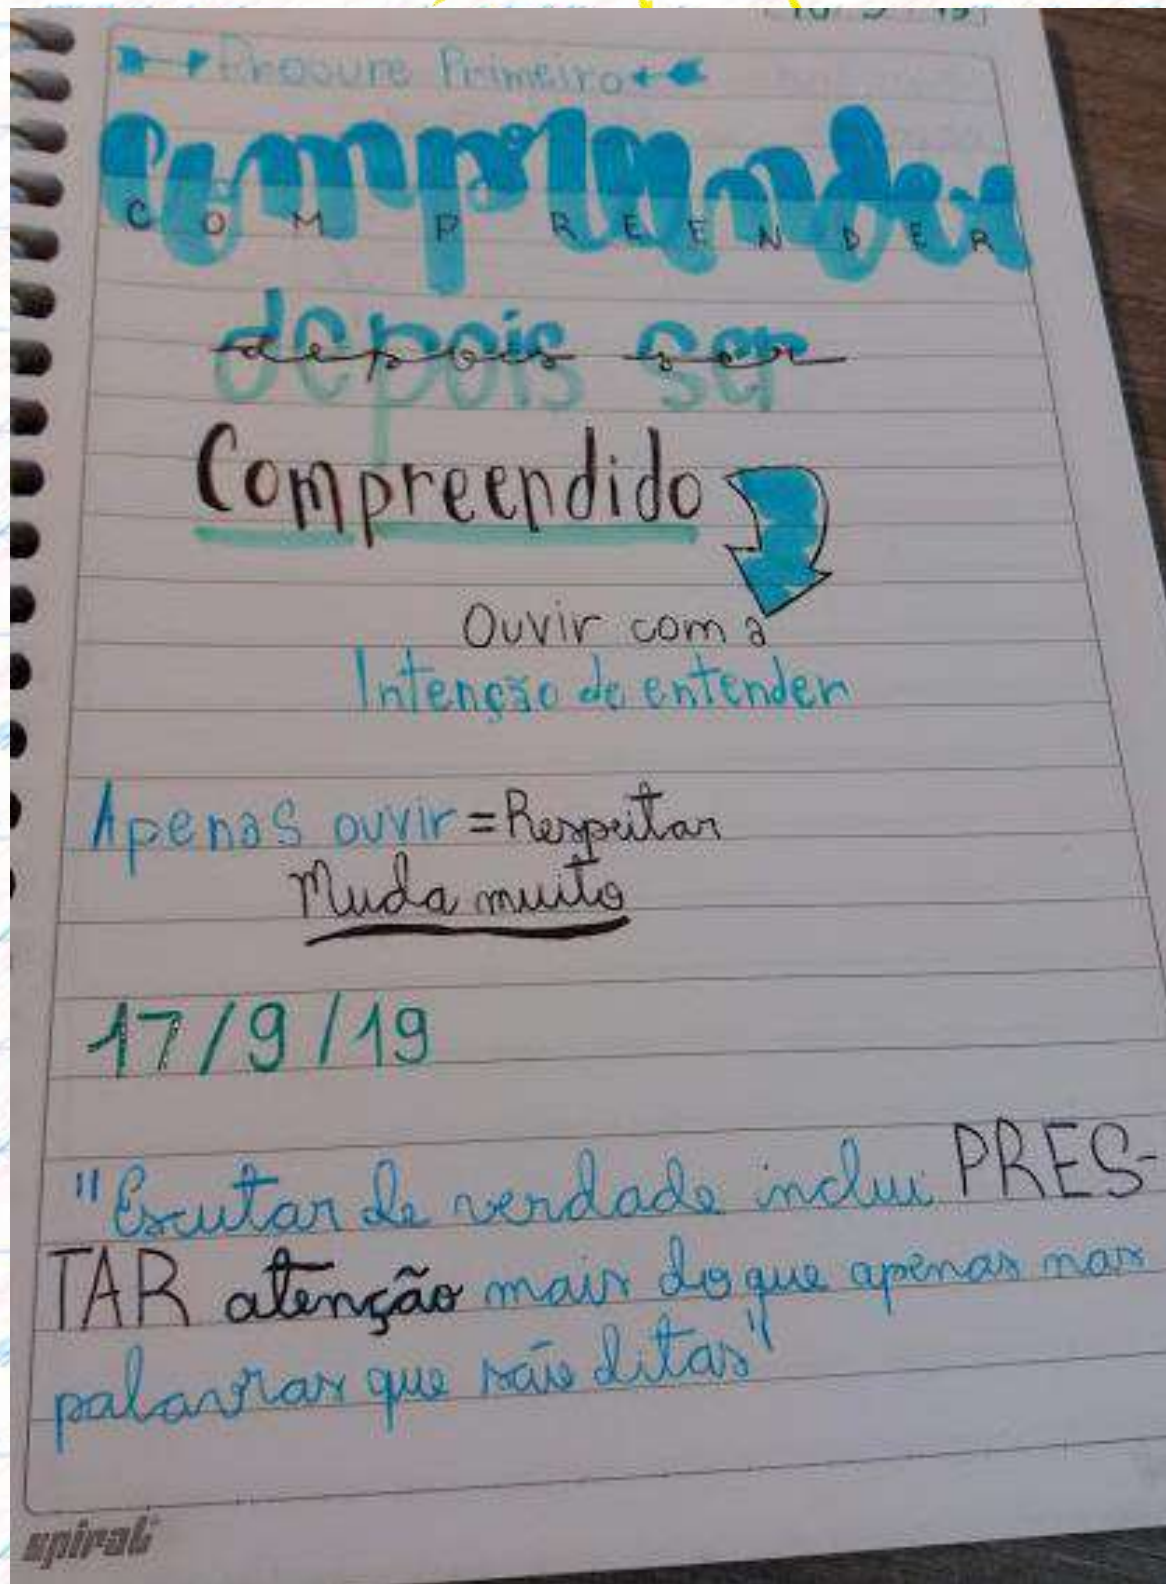 Procure Primeiro
Compreender
C O M P R E E N D E R
depois ser
depois ser
Compreendido
Ouvir com a
Intenção de entender
Apenas ouvir = Respeitar
Muda muito
17/9/19
"Escutar de verdade inclui PRES-
TAR atenção mais do que apenas nas
palavras que são ditas"
spiral